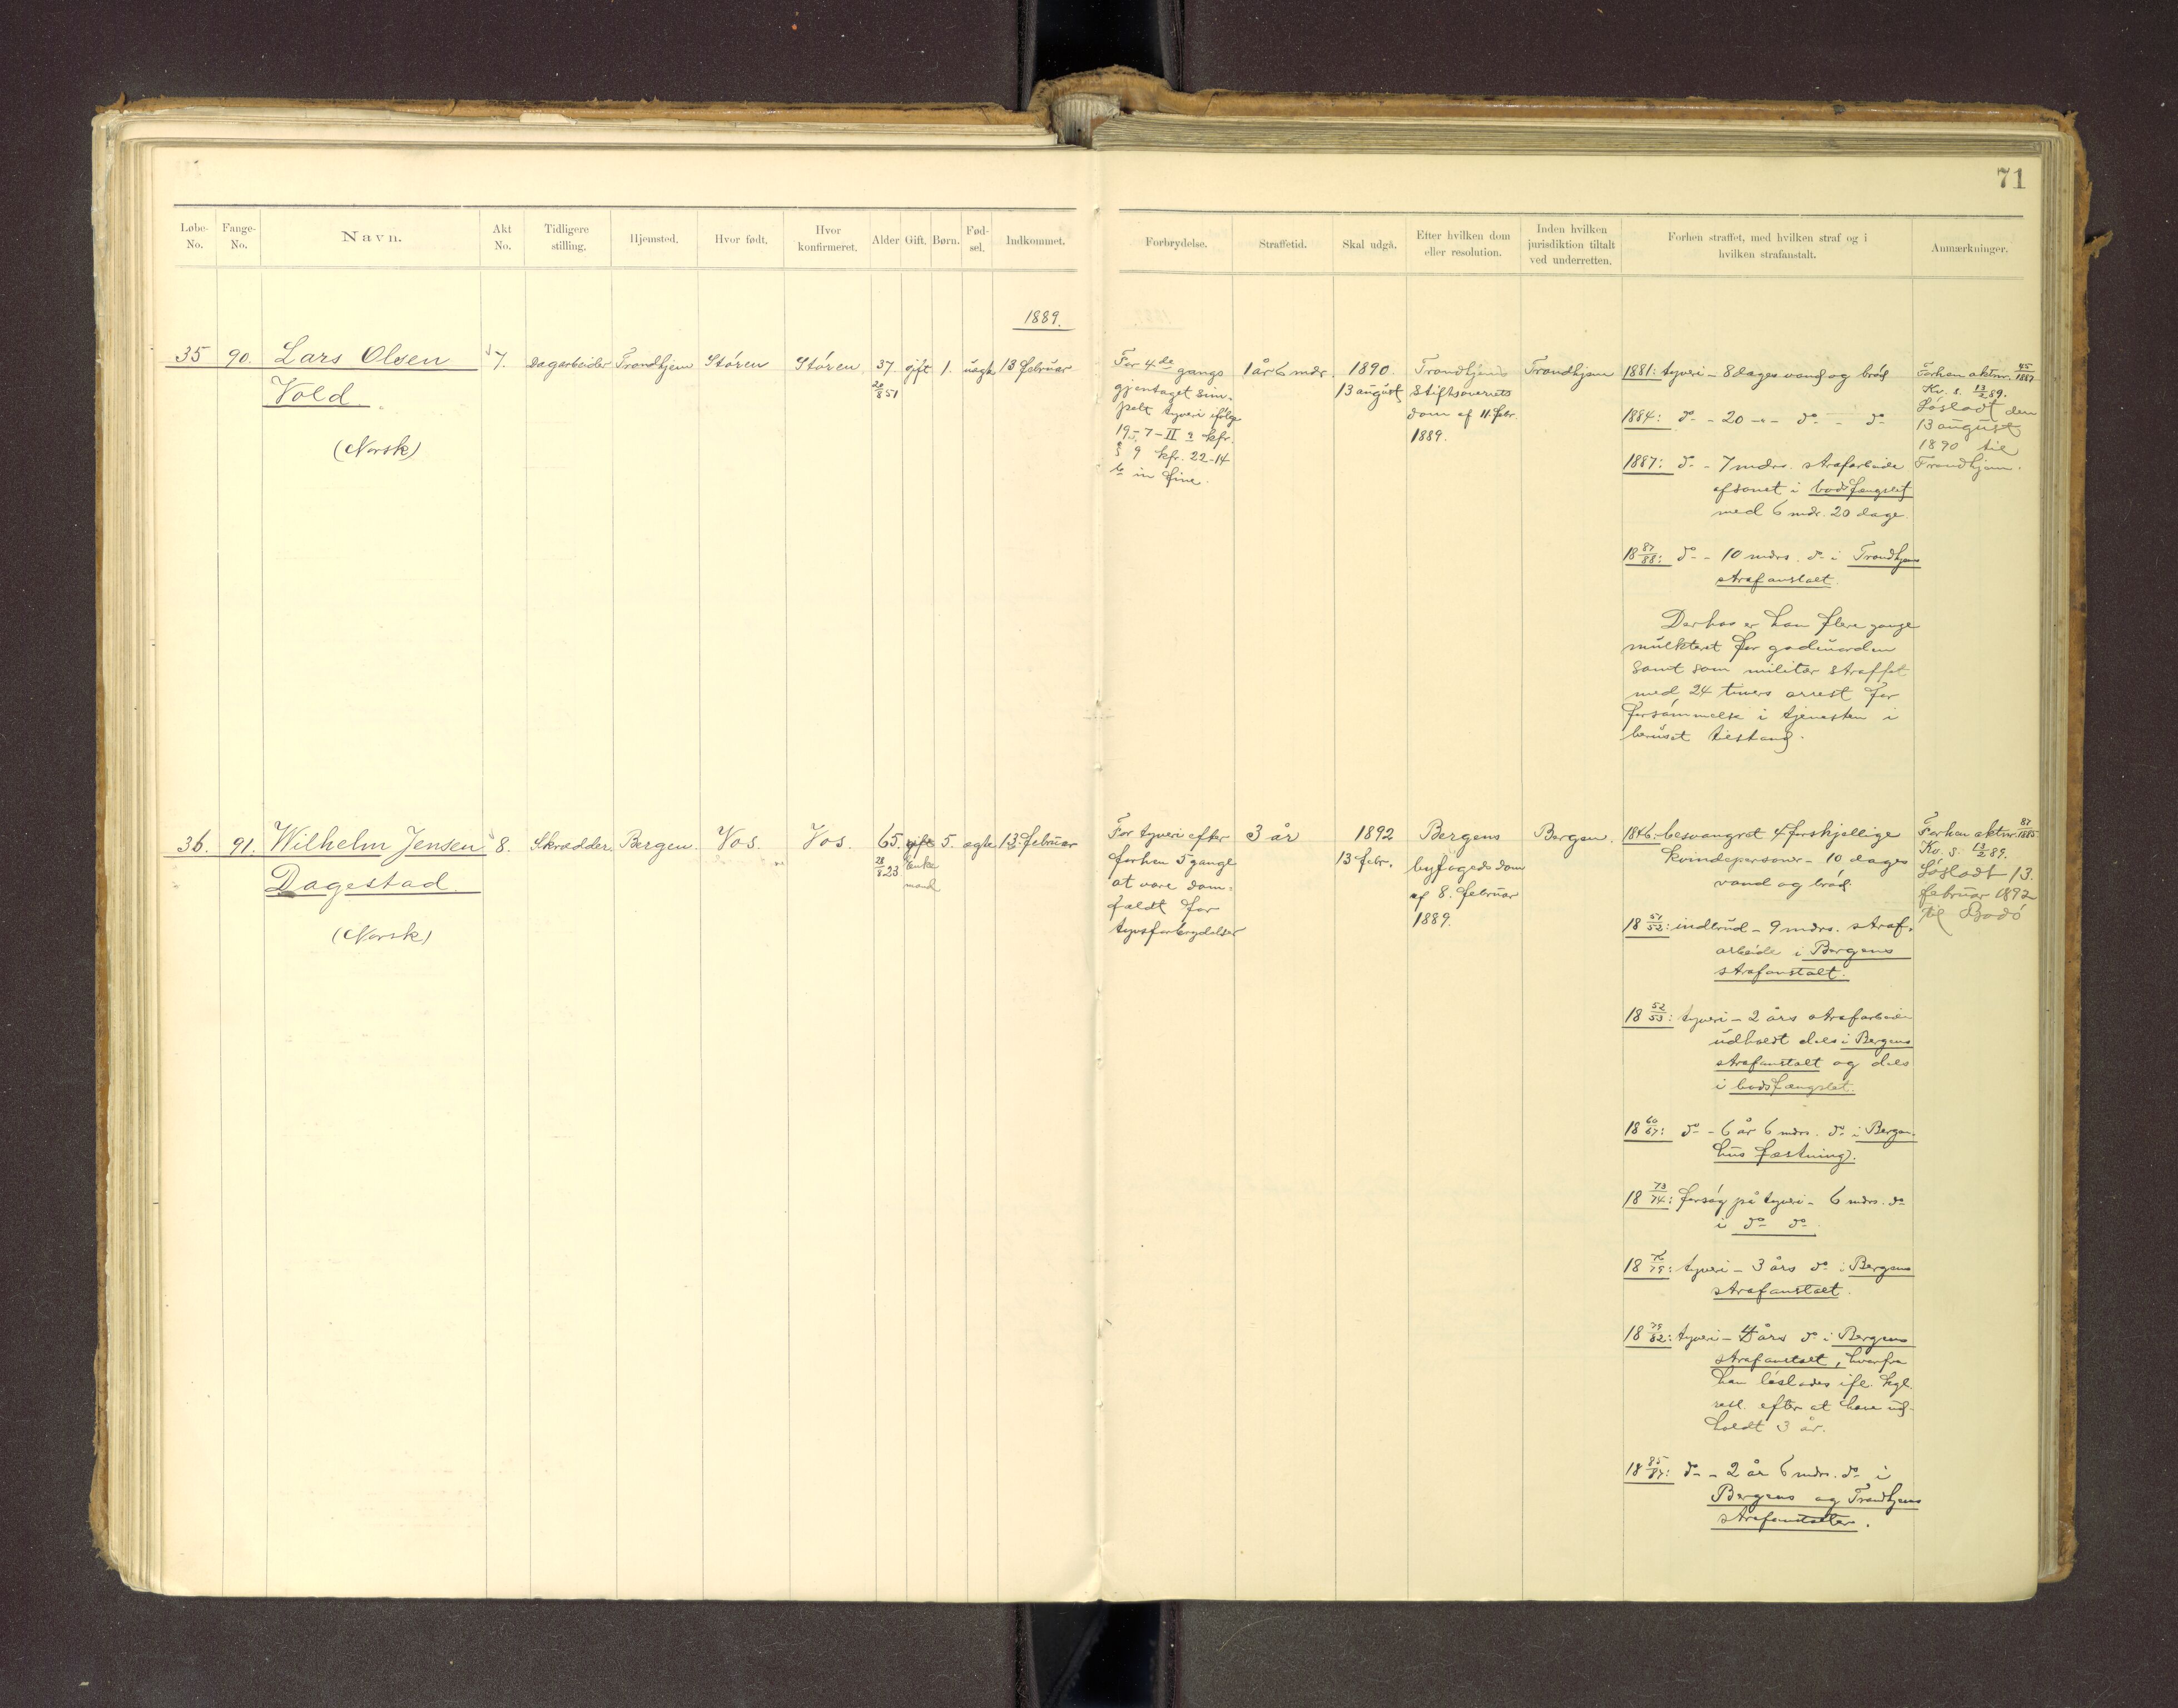 71
Løbe-No.
Fange-No.
Navn.
Akt No.
Tidligere stilling.
Hjemsted.
Hvor født.
Hvor konfirmeret.
Alder
Gift.
Børn.
Fød-sel.
Indkommet.
Forbrydelse.
Straffetid.
Skal udgå.
Efter hvilken dom eller resolution.
Inden hvilken jurisdiktion tiltalt ved underretten.
Forhen straffet, med hvilken straf og i hvilken strafanstalt.
Anmærkninger.
1889.
35
90.
Lars Olsen
Vold.
(Norsk)
7.
Dagarbeider
Trondhjem
Støren
Støren
37.
20/8 51
gift
1.
uægte
13 februar
For 4de gangs
gjentaget sim-
pelt tyveri ifølge
19-7-II kfr.
§ 9 kfr. 22-14
b in fine.
1 år 6 mdr.
1890.
13 august
Trondhjems
stiftsoverrets
dom af 11. febr.
1889.
Trondhjem
1881: tyveri - 8 dages vand og brød
1884: do - 20 -"- do - do
1887: do - 7 mdrs. strafarbeide
afsonet i bodsfængslet
med 6 mdr. 20 dage.
18 87/88: do - 10 mdrs. do i Trondhjems
strafanstalt.
Derhos er han flere gange
mulkteret for gadeuorden
samt som militær straffet
med 24 timers arrest for
forsømmelse i tjenesten i
beruset tilstand.
Forhen aktnr. 45/1887
Kv. s. 13/2 89.
Løsladt den
13 august
1890 til
Trondhjem.
36.
91.
Wilhelm Jensen
Dagestad.
(Norsk)
8.
Skrædder
Bergen
Vos.
Vos.
65.
28/8 23
gift
Enke
mand
5.
ægte
13. februar
For tyveri efter
forhen 5 gange
at være dom-
fældt for
tyvsforbrydelser
3 år
1892
13 febr.
Bergens
byfogeds dom
af 8. februar
1889.
Bergen.
1846: besvangret 4 forskjellige
kvindepersoner - 10 dages
vand og brød.
18 51/52: indbrud - 9 mdrs. straf-
arbeide i Bergens
strafanstalt.
18 52/53: tyveri - 2 års strafarbeide
udholdt dels i Bergens
strafanstalt og dels
i bodsfængslet.
18 60/67: do - 6 år 6 mdrs. do i Bergen-
hus fæstning.
18 73/74: forsøg på tyveri - 6 mdrs. do
i do do
18 76/79: tyveri - 3 års do i Bergens
strafanstalt.
18 79/82: tyveri - 4 års do i Bergens
strafanstalt, hvorfra
han løslades ifl. kgl.
resl. efter at have ud-
holdt 3 år.
18 85/87: do - 2 år 6 mdr. do i
Bergens og Trondhjems
strafanstalter.
Forhen aktnr. 87/1885
Kv. s. 13/2 89.
Løsladt 13.
februar 1892
til Bodø